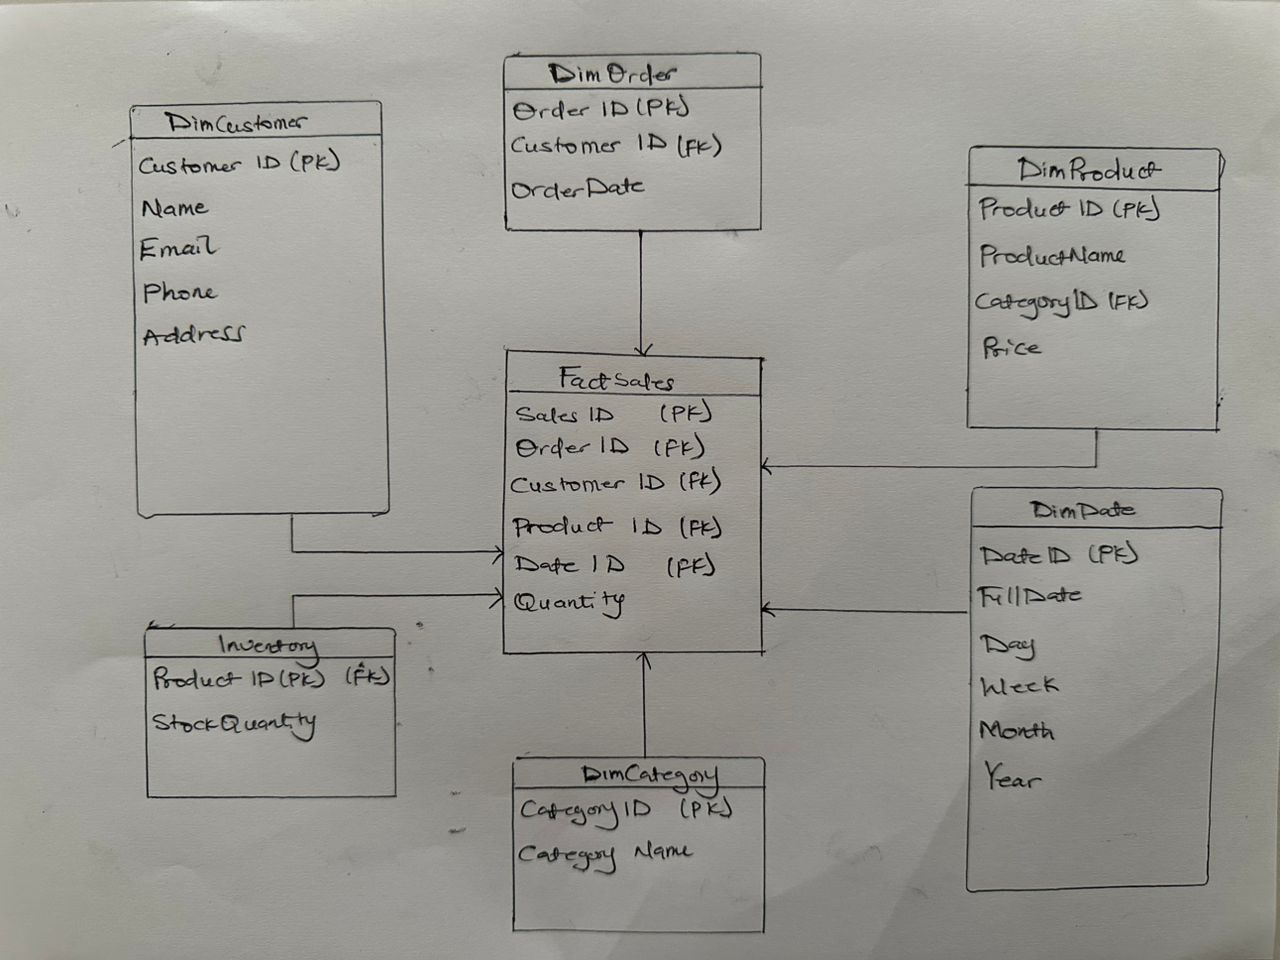 DimOrder
Order ID (PK)
Customer ID (FK)
OrderDate
DimCustomer
Customer ID (PK)
Name
Email
Phone
Address
DimProduct
Product ID (PK)
ProductName
CategoryID (FK)
Price
FactSales
Sales ID (PK)
Order ID (FK)
Customer ID (FK)
Product ID (FK)
Date ID (FK)
Quantity
DimDate
DateID (PK)
FullDate
Day
Week
Month
Year
Inventory
Product ID (PK) (FK)
StockQuantity
DimCategory
CategoryID (PK)
Category Name